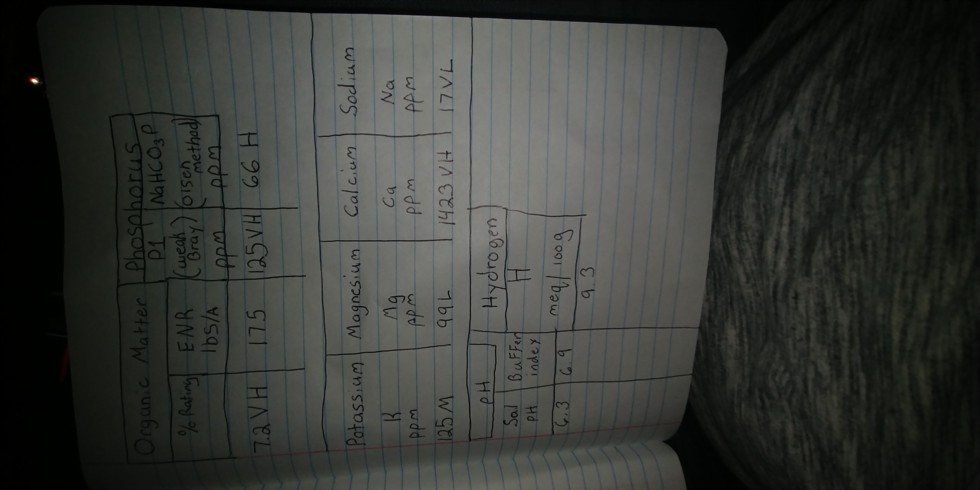 Organic Matter Phosphorus
% Rating ENR P1 NaHCO3P
lbs/A (weak Bray) (olsen method)
ppm ppm
7.2VH 175 125VH 66 H
Potassium Magnesium Calcium Sodium
K Mg Ca Na
ppm ppm ppm ppm
125M 99L 1423 VH 17VL
pH Hydrogen
Soil pH Buffer index H
meq/100g
6.3 6.9 9.3